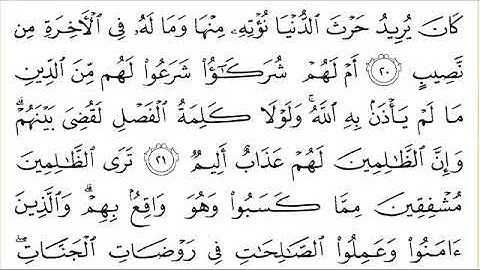 كَانَ يُرِيدُ حَرْثَ ٱلدُّنْيَا نُؤْتِهِۦ مِنْهَا وَمَا لَهُۥ فِى ٱلْأَخِرَةِ مِن
نَّصِيبٍ ٢٠ أَمْ لَهُمْ شُرَكَٰٓؤُا۟ شَرَعُوا۟ لَهُم مِّنَ ٱلدِّينِ
مَا لَمْ يَأْذَنۢ بِهِ ٱللَّهُ ۚ وَلَوْلَا كَلِمَةُ ٱلْفَصْلِ لَقُضِىَ بَيْنَهُمْ ۗ
وَإِنَّ ٱلظَّٰلِمِينَ لَهُمْ عَذَابٌ أَلِيمٌ ٢١ تَرَى ٱلظَّٰلِمِينَ
مُشْفِقِينَ مِمَّا كَسَبُوا۟ وَهُوَ وَاقِعٌۢ بِهِمْ ۗ وَٱلَّذِينَ
ءَامَنُوا۟ وَعَمِلُوا۟ ٱلصَّٰلِحَٰتِ فِى رَوْضَاتِ ٱلْجَنَّاتِ ۖ